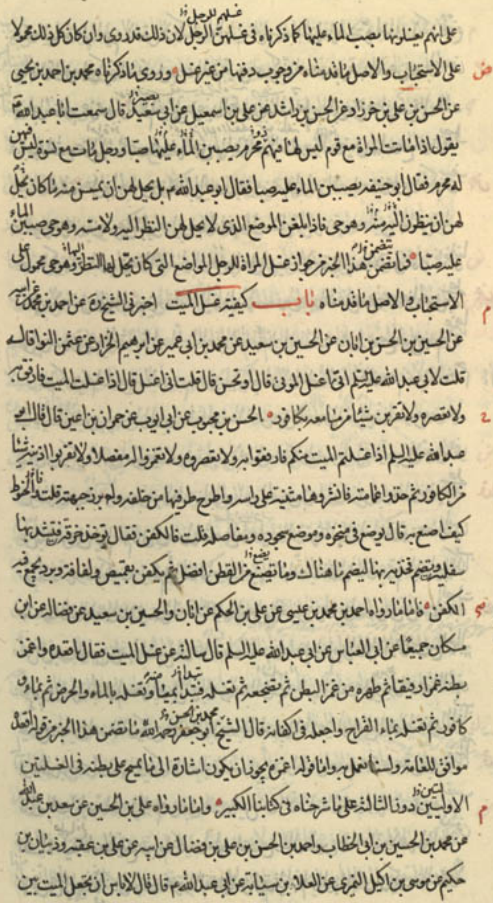 غسلهم للرجل
على انهم يغسلونها بصب الماء عليها كما ذكرناه في غسلهن الرجل لان ذلك قد روى وان كان كل ذلك محمولا
على الاستحباب والاصل ما قدمناه من وجوب دفنها من غير غسل وروى ما ذكرناه محمد بن احمد بن يحيى
عن الحسن بن علي بن خرزاد عن الحسن بن راشد عن علي بن اسمعيل عن ابى سعيد قال سمعت ابا عبد الله م
يقول اذا ماتت المراة مع قوم ليس لها فيهم محرم يصبون الماء عليها صبا ورجل مات مع نسوة ليس فيهن
له محرم فقال ابو حنيفه يصببن الماء عليه صبا فقال ابو عبد الله م بل يحل لهن ان يمسسن منه ما كان يحل
لهن ان ينظرن اليه منه وهو حي فاذا بلغن الموضع الذى لا يحل لهن النظر اليه ولا مسه وهو حي صببن الماء
عليه صبا فما تضمن هذا الخبر من جواز غسل المراة للرجل المواضع التي كان يحل لها النظر اليها وهو حي محمول على
الاستحباب والاصل ما قدمناه باب كيفية غسل الميت اخبرني الشيخ ره عن احمد بن محمد عن ابيه
عن الحسين بن الحسن بن ابان عن الحسين بن سعيد عن محمد بن ابى عمير عن ابرهيم الخزاز عن عثمن النوا قال
قلت لابى عبد الله عليه السلم انى اغسل الموتى قال او تحسن قال قلت انى اغسل قال اذا غسلت الميت فارفق به
ولا تعصره ولا تقربن شيئا من مسامعه بكافور الحسن بن محبوب عن ابى ايوب عن حمران بن اعين قال قال ابو
عبد الله عليه السلم اذا غسلتم الميت منكم فارفقوا به ولا تعصروه ولا تغمزوا له مفصلا ولا تقربوا اذنيه شيئا
من الكافور ثم خذوا عمامته فانشروها مثنية على راسه واطرح طرفيها من خلفه وابرز جبهته قلت فالحنوط
كيف اصنع به قال يوضع في منخره وموضع سجوده ومفاصله قلت فالكفن فقال يؤخذ خرقة فيشد بها
سفليه ويضم فخذيه بها ليضم ما هناك وما يصنع من القطن افضل ثم يكفن بقميص ولفافة وبرد يجمع فيه
الكفن فاما ما رواه احمد بن محمد بن عيسى عن علي بن الحكم عن ابان والحسين بن سعيد عن فضالة عن ابن
مسكان جميعا عن ابى العباس عن ابى عبد الله عليه السلم قال سالته عن غسل الميت فقال اقعده واغمز
بطنه غمزا رفيقا ثم طهره من غمز البطن ثم تضجعه ثم تغسله تبدا بميامنه وتغسله بالماء والحرض ثم بماء و
كافور ثم تغسله بماء القراح واجعله في اكفانه قال الشيخ ابو جعفر محمد بن الحسن رحمه الله ما تضمن هذا الخبر من قوله اقعده
موافق للعامة ولسنا نعمل به واما قوله اغمزه يجوز ان يكون اشارة الى ما يمسح على بطنه في الغسلتين
الاوليين دون الثالثة على ما شرحناه في كتابنا الكبير واما ما رواه علي بن الحسين عن سعد بن عبد الله
عن محمد بن الحسين بن ابى الخطاب واحمد بن الحسن بن علي بن فضال عن ابيه عن علي بن عقبه وذبيان بن
حكيم عن موسى بن اكيل النميرى عن العلا بن سيابة عن ابى عبد الله م قال لا باس ان تجعل الميت بين